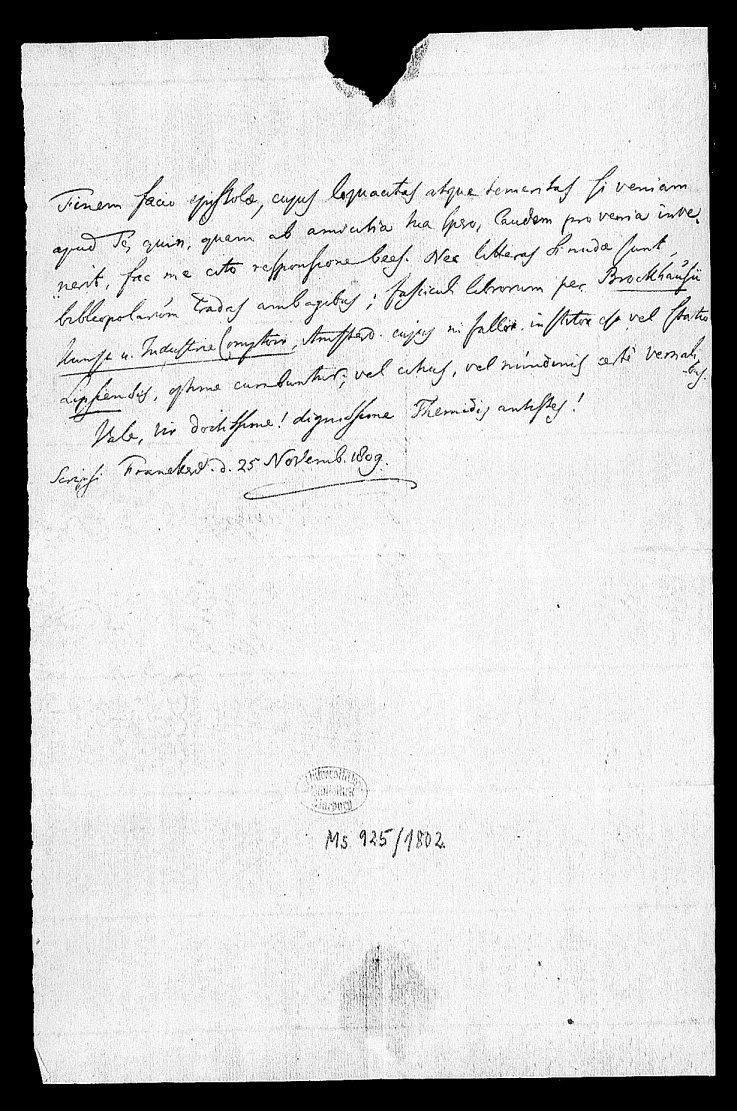 Finem facio epistolæ, cujus loquacitas atque temeritas si veniam
apud Te, quin, quam ab amicitia tua spero, laudem pro venia inve-
nerit, fac me cito responsione bees. Nec litteras si nudæ sunt,
bibliopolarum tradas ambagibus; fasciculi librorum per Brockhausii
Kunst u. Industrie Comptoir, Amsterd. cujus ni fallor institor est vel
Lipsiensis, optime curabuntur, vel citius, vel nundinis certe vernali-
bus.
Vale, vir doctissime! dignissime Themidis antistes!
Scripsi Franekeræ. d. 25 Novemb. 1809.
Universitäts-
Bibliothek
Marburg
Ms 925/1802